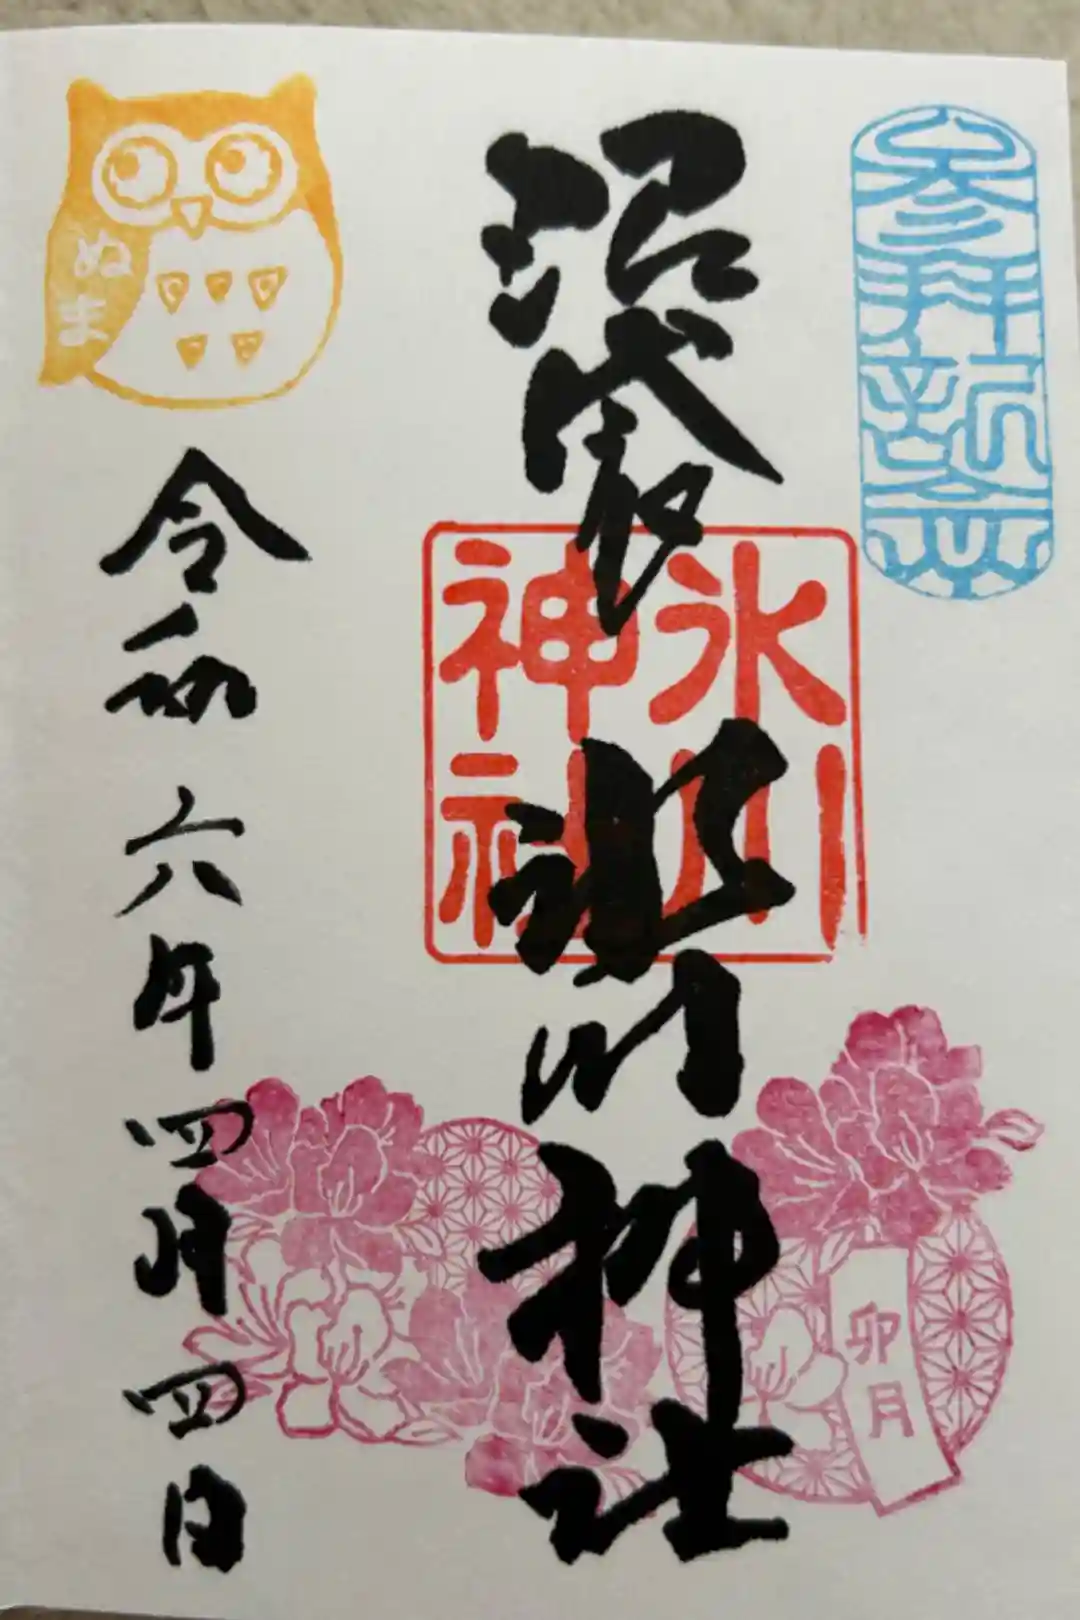 参拝記念
沼袋
氷川神社
氷川
神社
卯月
ぬま
令和六年四月四日